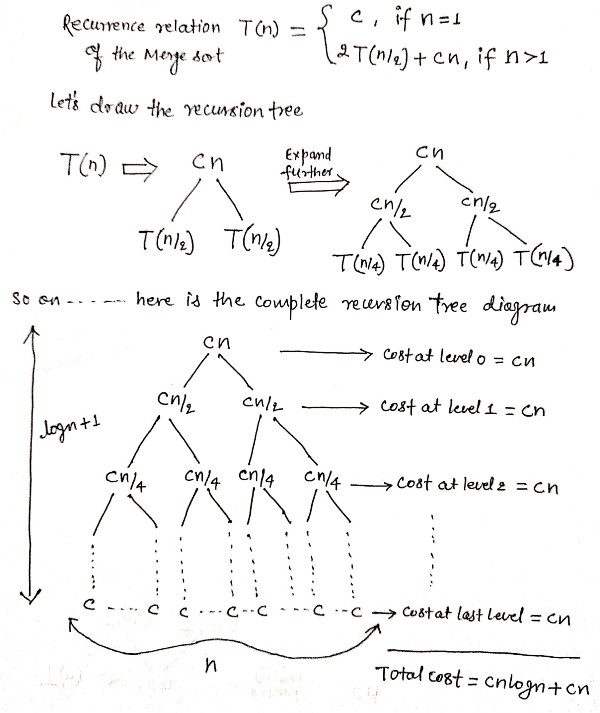 Recurrence relation T(n) = { c, if n=1
of the Merge sort 2T(n/2) + cn, if n>1
Let's draw the recursion tree
T(n) ⇒ cn Expand further ⇒ cn
cn/2 cn/2
T(n/2) T(n/2)
T(n/4) T(n/4) T(n/4) T(n/4)
so on ------- here is the complete recursion tree diagram
cn → cost at level 0 = cn
cn/2 cn/2 → cost at level 1 = cn
logn+1
cn/4 cn/4 cn/4 cn/4 → cost at level 2 = cn
c ---- c c ---- c -- c ---- c -- c → cost at last level = cn
n
Total cost = cnlogn + cn